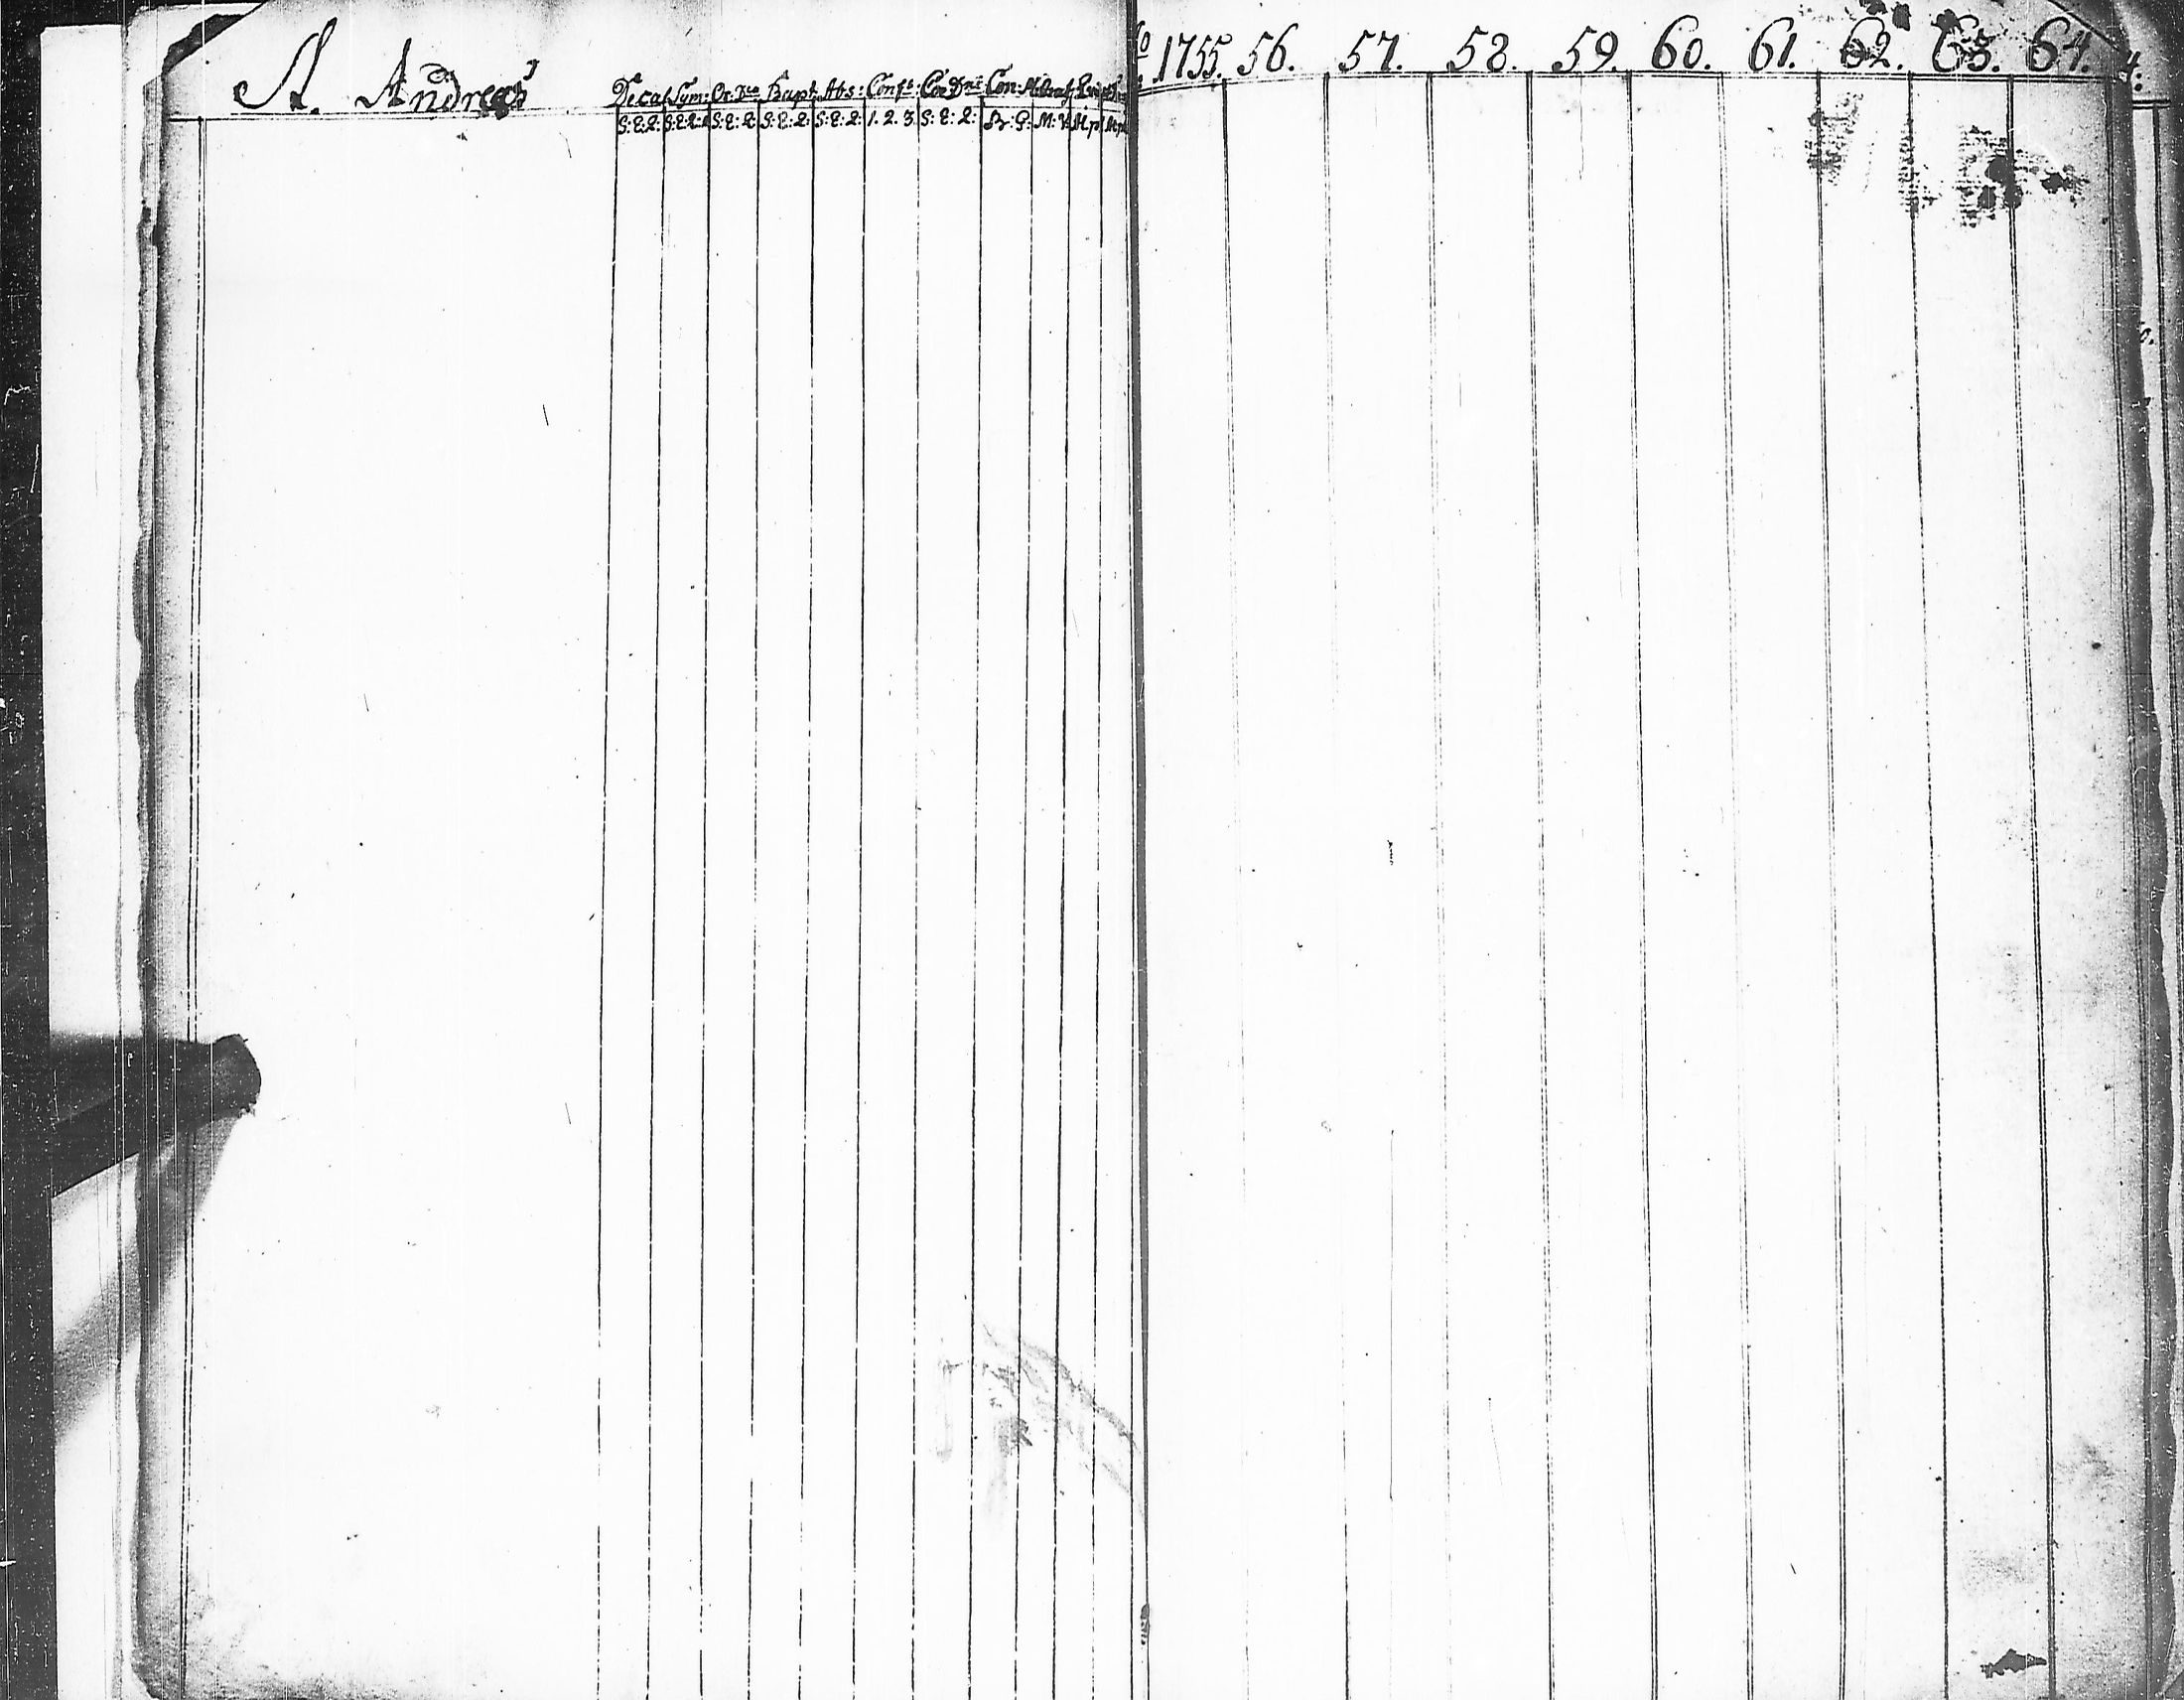 St. Andreas
Decal Sym: Or. Dca Bapt: Abs: Conf: Cœ Dni Con:
S: E: 2: S: E: 2: S: E: 2: S: E: 2: S: E: 2: 1. 2. 3. S: E: 2: Br: G: M:
1755. 56. 57. 58. 59. 60. 61. 62. 63. 64.